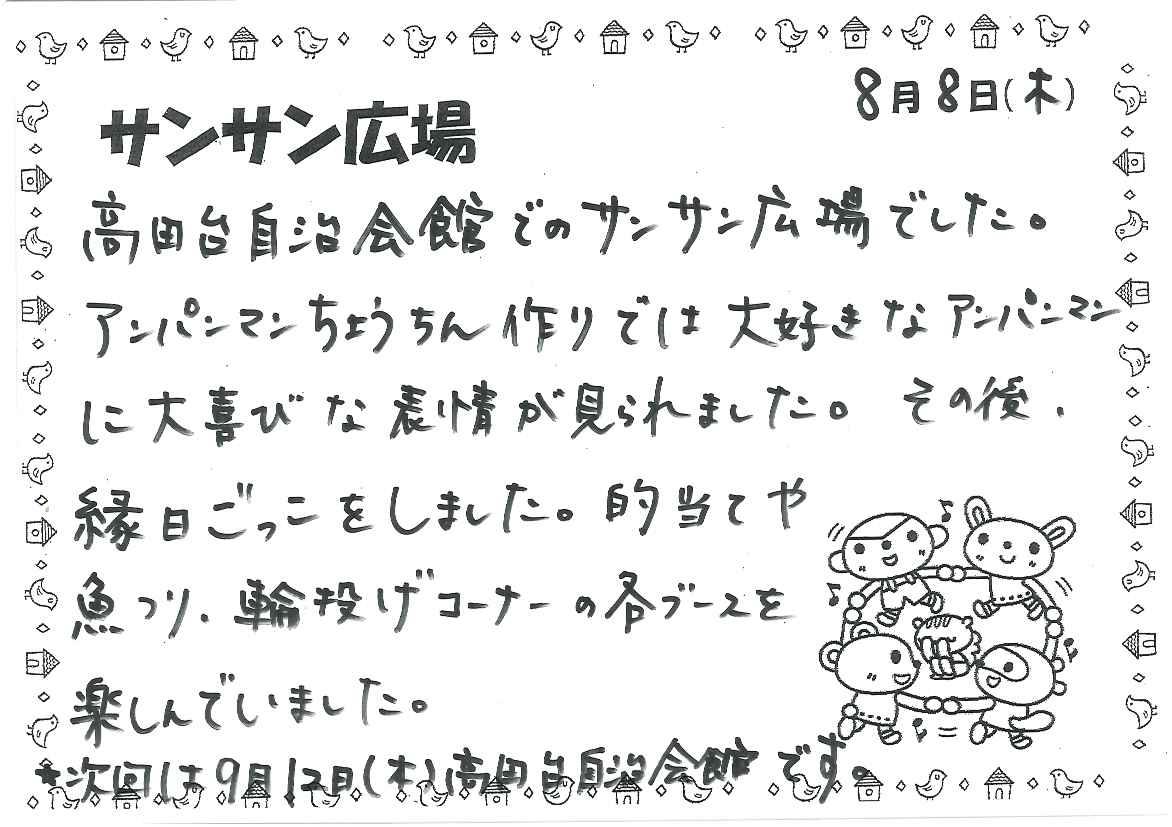 8月8日(木)
サンサン広場
高田台自治会館でのサンサン広場でした。
アンパンマンちょうちん作りでは大好きなアンパンマン
に大喜びな表情が見られました。その後、
縁日ごっこをしました。的当てや
魚つり、輪投げコーナーの各ブースを
楽しんでいました。
*次回は9月12日(木)高田台自治会館です。